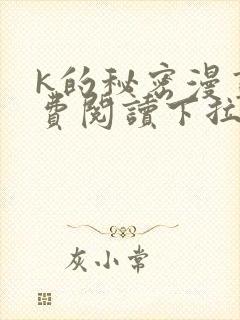 K的秘密漫
費閱讀下拉
灰小常